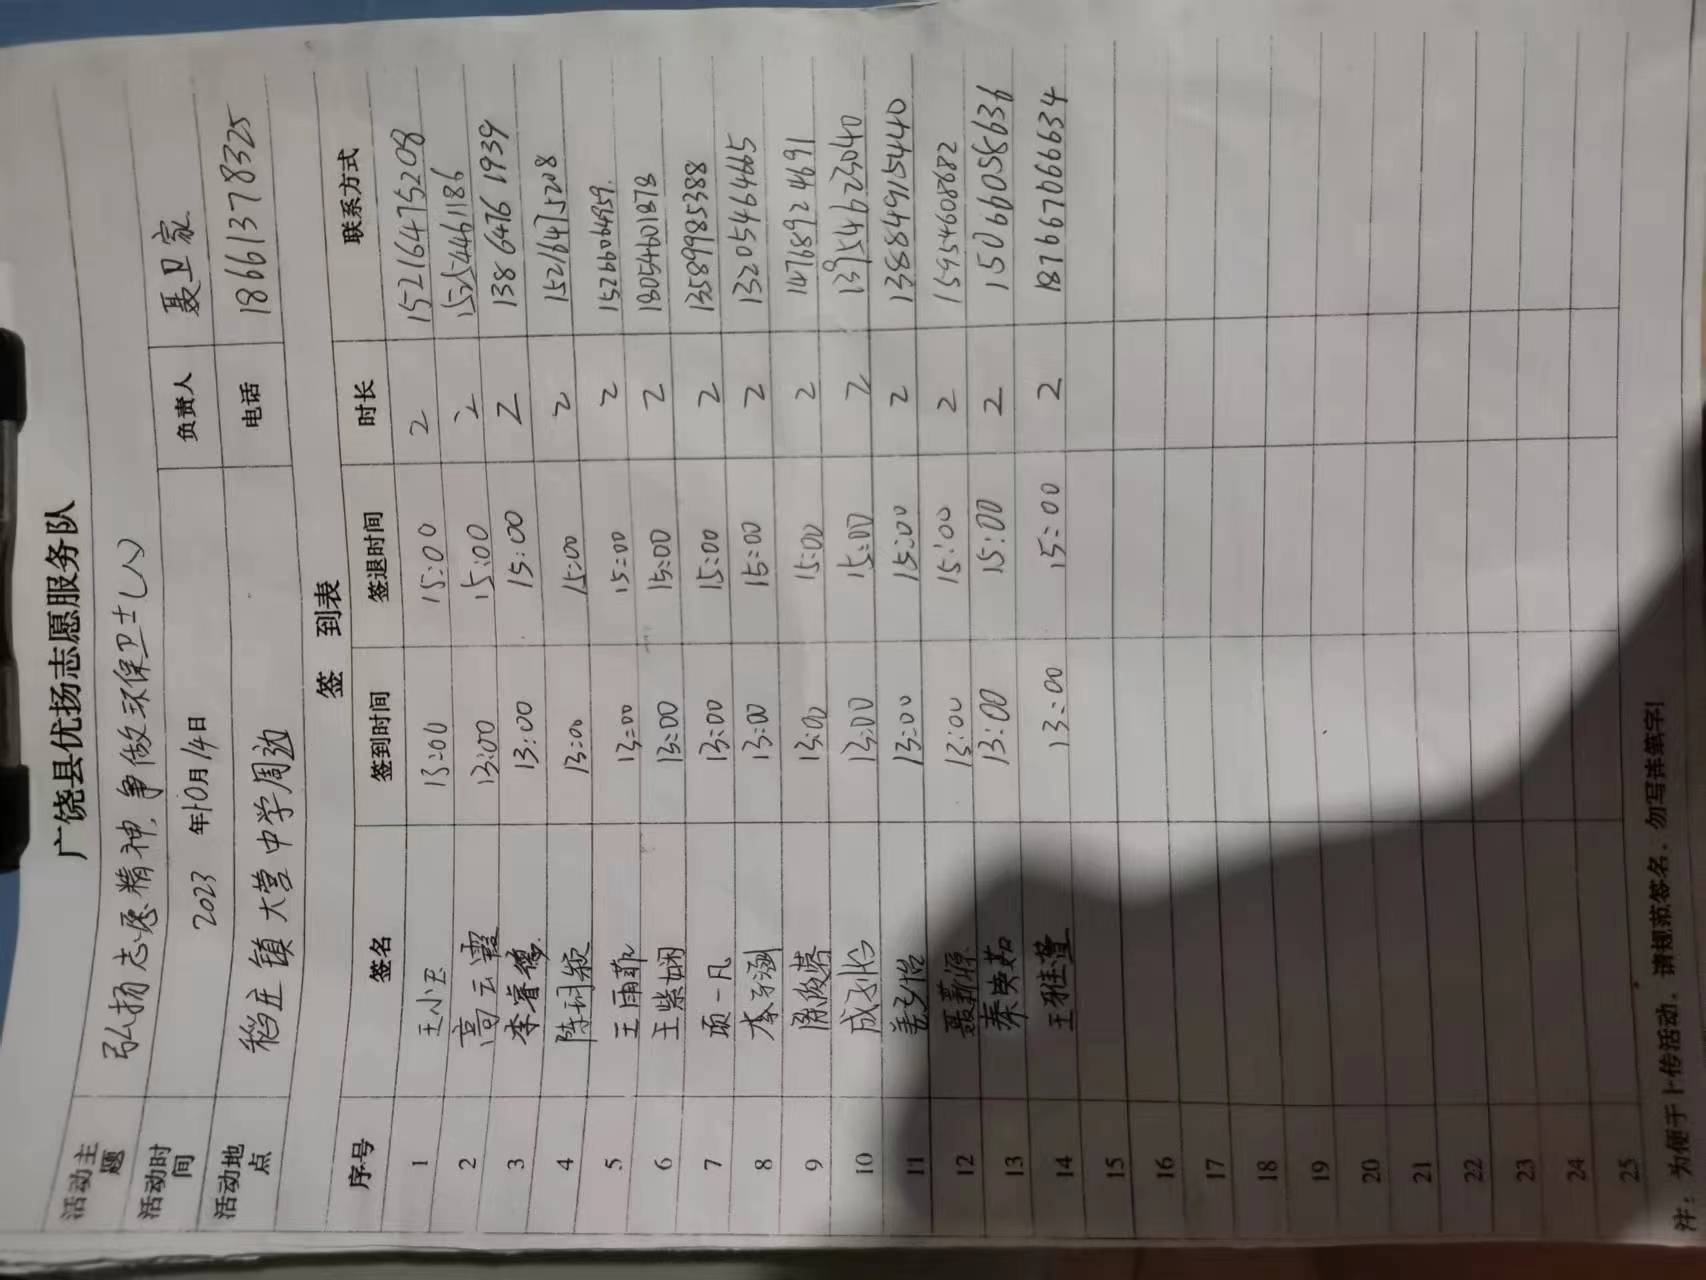 广饶县优扬志愿服务队
活动主题 弘扬志愿精神,争做环保卫士(八)
活动时间 2023年10月14日 负责人 聂卫家
活动地点 稻庄镇大营中学周边 电话 18661378325
签到表
序号 签名 签到时间 签退时间 时长 联系方式
1 王小卫 13:00 15:00 2 15216475208
2 高云霞 13:00 15:00 2 15254461186
3 李睿德 13:00 15:00 2 13864761939
4 陈珂颖 13:00 15:00 2 15216475208
5 王雨菲 13:00 15:00 2 15266064959
6 王紫娴 13:00 15:00 2 18054601878
7 项一凡 13:00 15:00 2 13589985388
8 李子涵 13:00 15:00 2 13205464665
9 13:00 15:00 2 14768924691
10 成子怡 13:00 15:00 2 13954623040
11 姜夕怡 13:00 15:00 2 13884915440
12 聂新源 13:00 15:00 2 15954608682
13 秦奕茹 13:00 15:00 2 15066058636
14 王雅萱 13:00 15:00 2 187667066634
15
16
17
18
19
20
21
22
23
24
25
注:为便于上传活动,请规范签名,勿写连笔字!